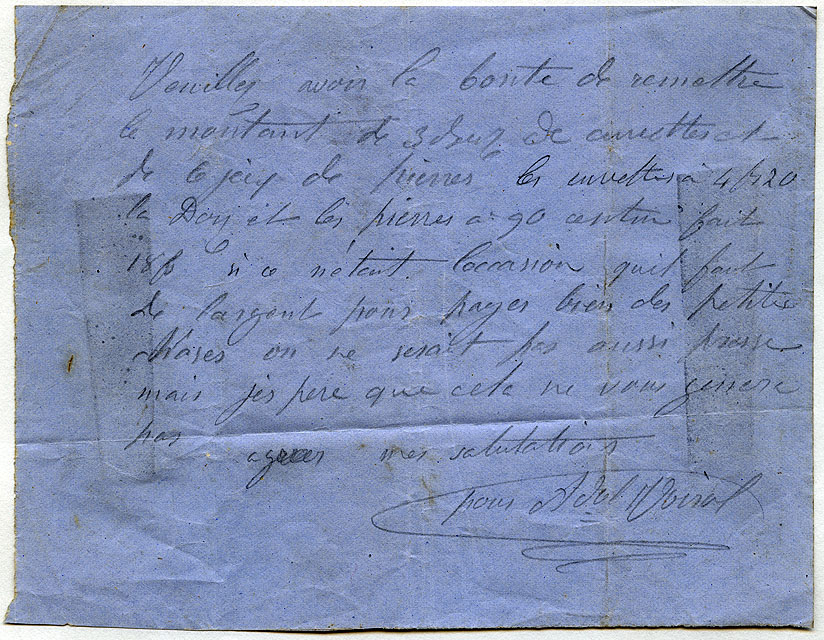 Veuilles avoir la bonte de remettre
le montant de 3 douz de cuvettes et
de 6 jeux de pierres les cuvettes à 4 fr 20
la Douz et les pierres a 90 centim fait
18 fr si ce n'etait l'occasion quil faut
de l'argent pour payer bien des petites
choses on ne serait pas aussi presse
mais j'espere que cela ne vous genera
pas
agreer mes salutations
pour Adel Voirol